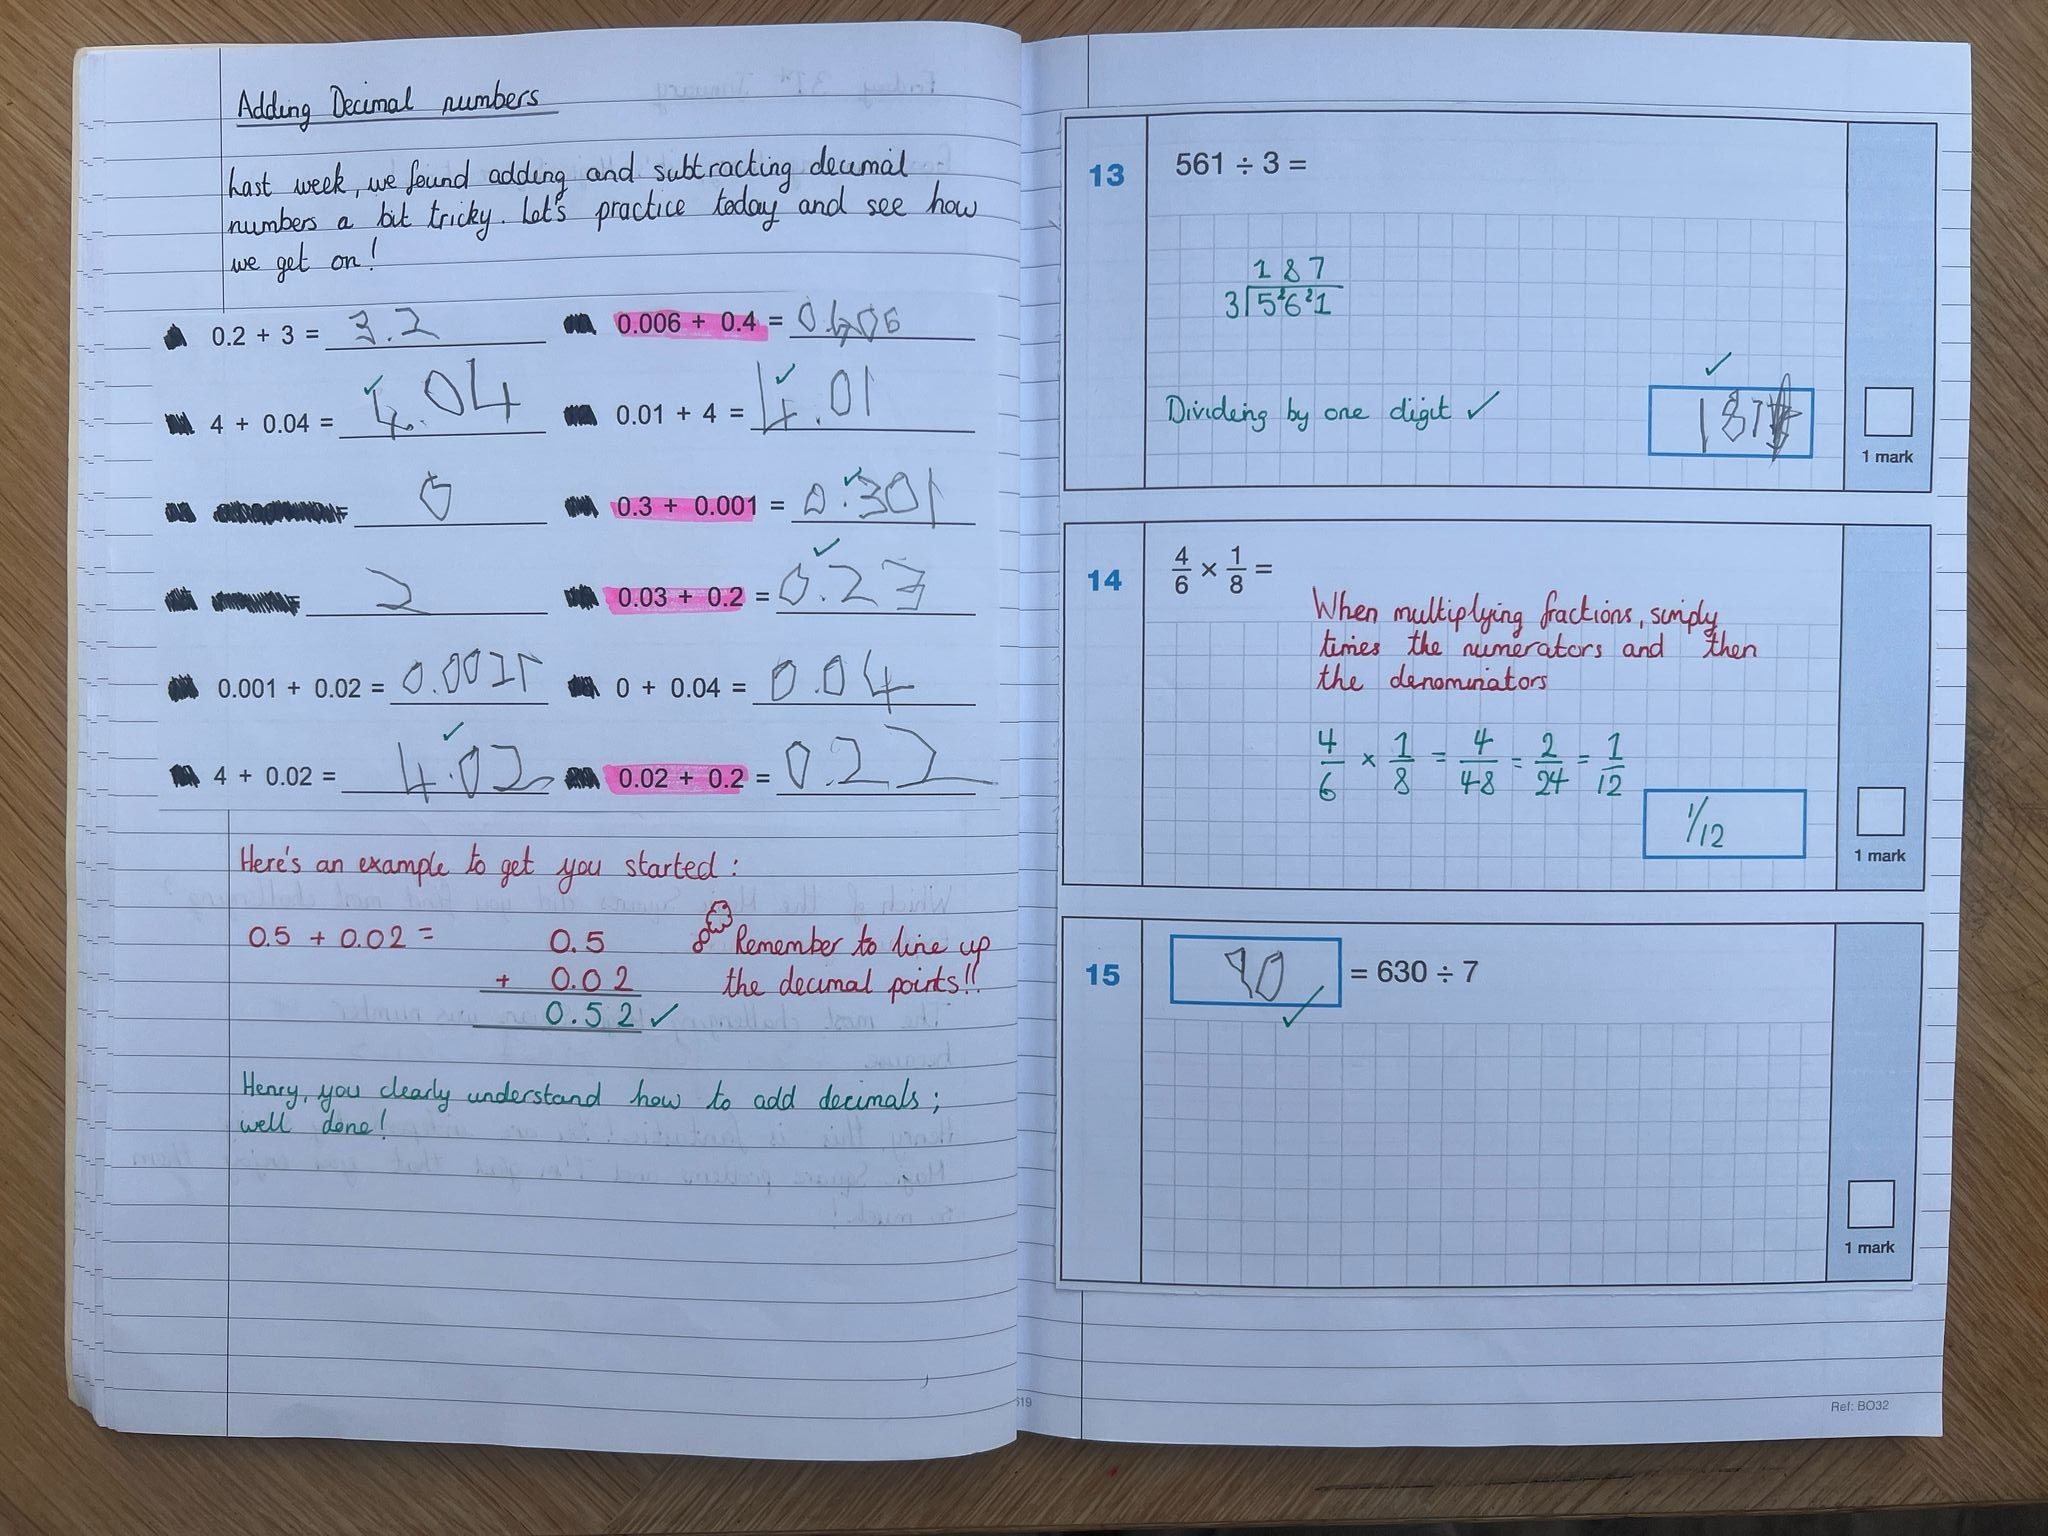 Adding Decimal numbers
Last week, we found adding and subtracting decimal
numbers a bit tricky. Let's practice today and see how
we get on!
0.2 + 3 = 3.2
4 + 0.04 = 4.04
0
2
0.001 + 0.02 =
4 + 0.02 = 4.02
0.006 + 0.4 =
0.01 + 4 = 4.01
0.3 + 0.001 = 0.301
0.03 + 0.2 = 0.23
0 + 0.04 = 0.04
0.02 + 0.2 = 0.22
Here's an example to get you started:
0.5 + 0.02 =
0.5
+ 0.02
0.52 ✓
Remember to line up
the decimal points!!
Henry, you clearly understand how to add decimals;
well done!
13
561 ÷ 3 =
187
3 5²6²1
Dividing by one digit ✓
187
1 mark
14
4/6 × 1/8 =
When multiplying fractions, simply
times the numerators and then
the denominators
4/6 × 1/8 = 4/48 = 2/24 = 1/12
1/12
1 mark
15
90 = 630 ÷ 7
1 mark
Ref: BO32